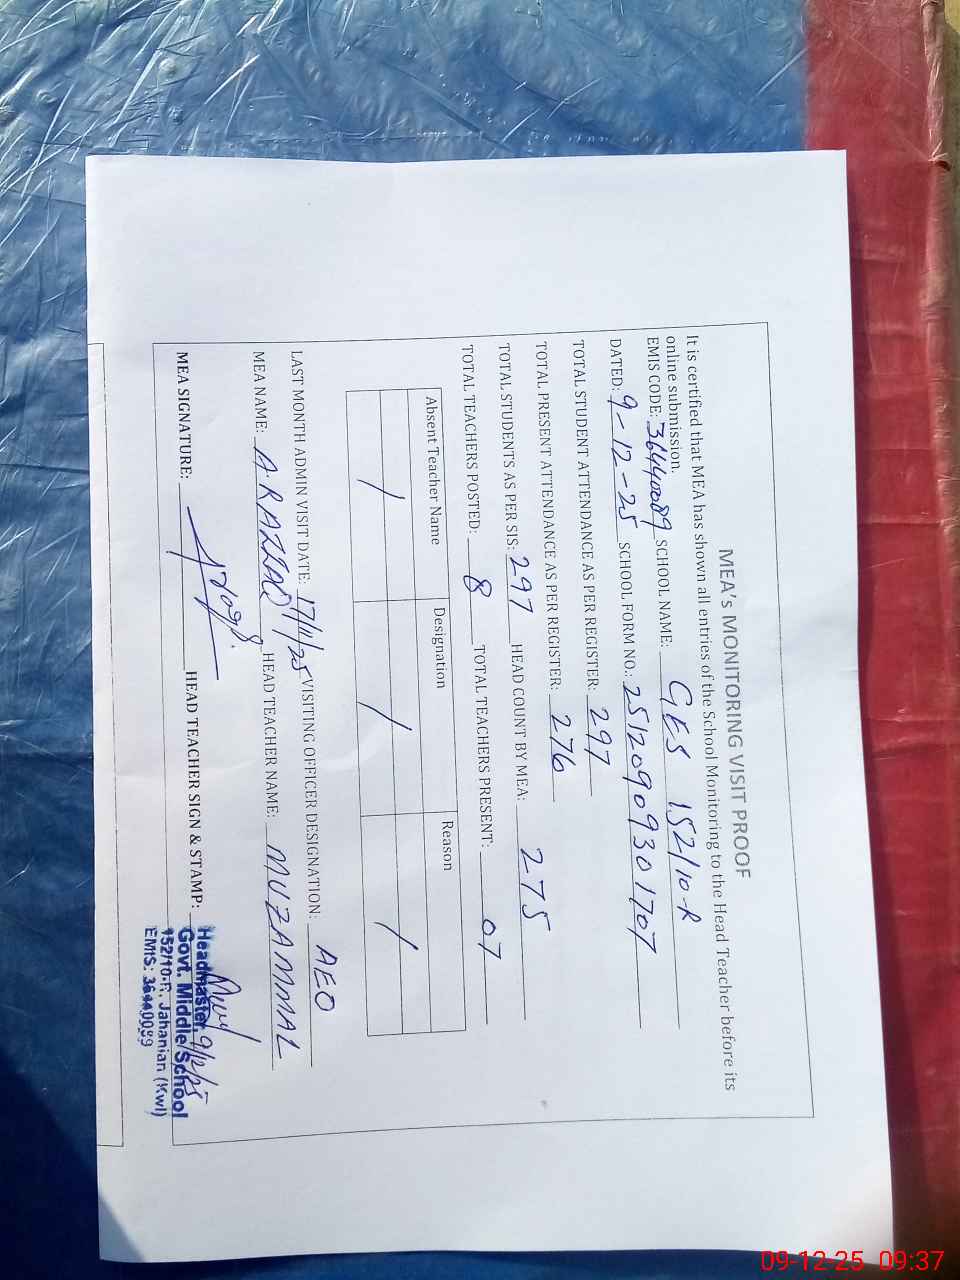 MEA's MONITORING VISIT PROOF
It is certified that MEA has shown all entries of the School Monitoring to the Head Teacher before its
online submission.
EMIS CODE: 36440089 SCHOOL NAME: GES 152/10-R
DATED: 9-12-25 SCHOOL FORM NO.: 25120909301707
TOTAL STUDENT ATTENDANCE AS PER REGISTER: 297
TOTAL PRESENT ATTENDANCE AS PER REGISTER: 276
TOTAL STUDENTS AS PER SIS: 297 HEAD COUNT BY MEA: 275
TOTAL TEACHERS POSTED: 8 TOTAL TEACHERS PRESENT: 07
Absent Teacher Name Designation Reason
/ / /
LAST MONTH ADMIN VISIT DATE: 17/11/25 VISITING OFFICER DESIGNATION: AEO
MEA NAME: A.RAZZAQ HEAD TEACHER NAME: MUZAMMAL
MEA SIGNATURE: HEAD TEACHER SIGN & STAMP:
9/12/25
Headmaster
Govt. Middle School
152/10-R, Jahanian (Kwl)
EMIS: 36440089
09-12-25 09:37